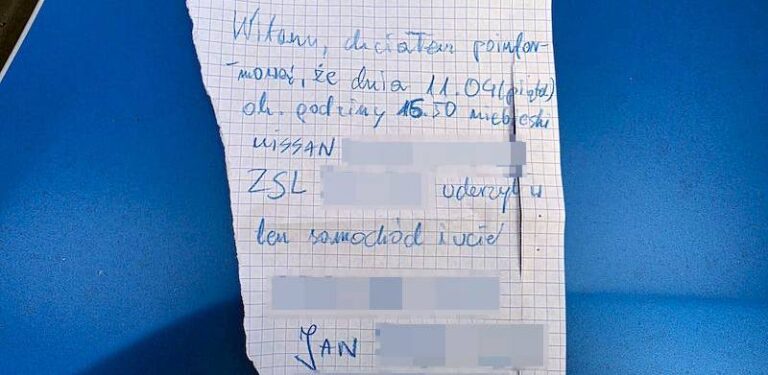 Witam, chciałem poinfor-
-mować, że dnia 11.04 (piątek)
ok. godziny 16.50 niebieski
NISSAN
ZSL uderzył w
ten samochód i uciekł
JAN